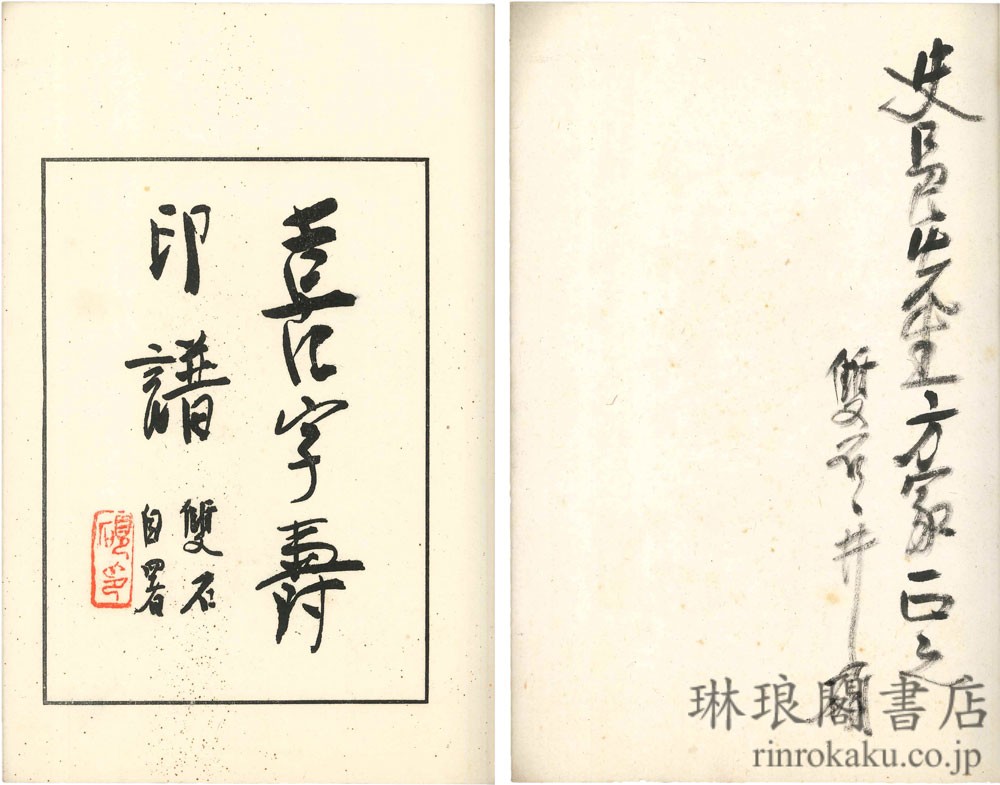 喜字壽
印譜
雙石
自署
先生方家正之
雙石井
琳琅閣書店
rinrokaku.co.jp